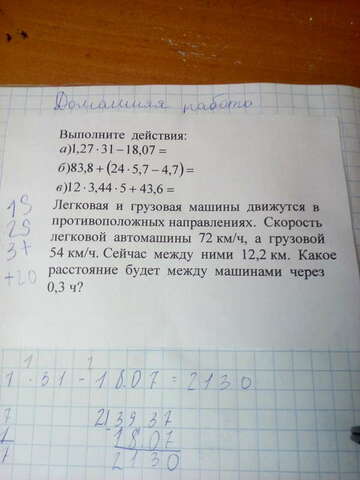 Домашняя работа
Выполните действия:
а)1,27·31–18,07 =
б)83,8+(24·5,7–4,7)=
в)12·3,44·5+43,6=
Легковая и грузовая машины движутся в
противоположных направлениях. Скорость
легковой автомашины 72 км/ч, а грузовой
54 км/ч. Сейчас между ними 12,2 км. Какое
расстояние будет между машинами через
0,3 ч?
+20
· 31 - 18.07 = 2130
2) 39,37
- 18.07
2130